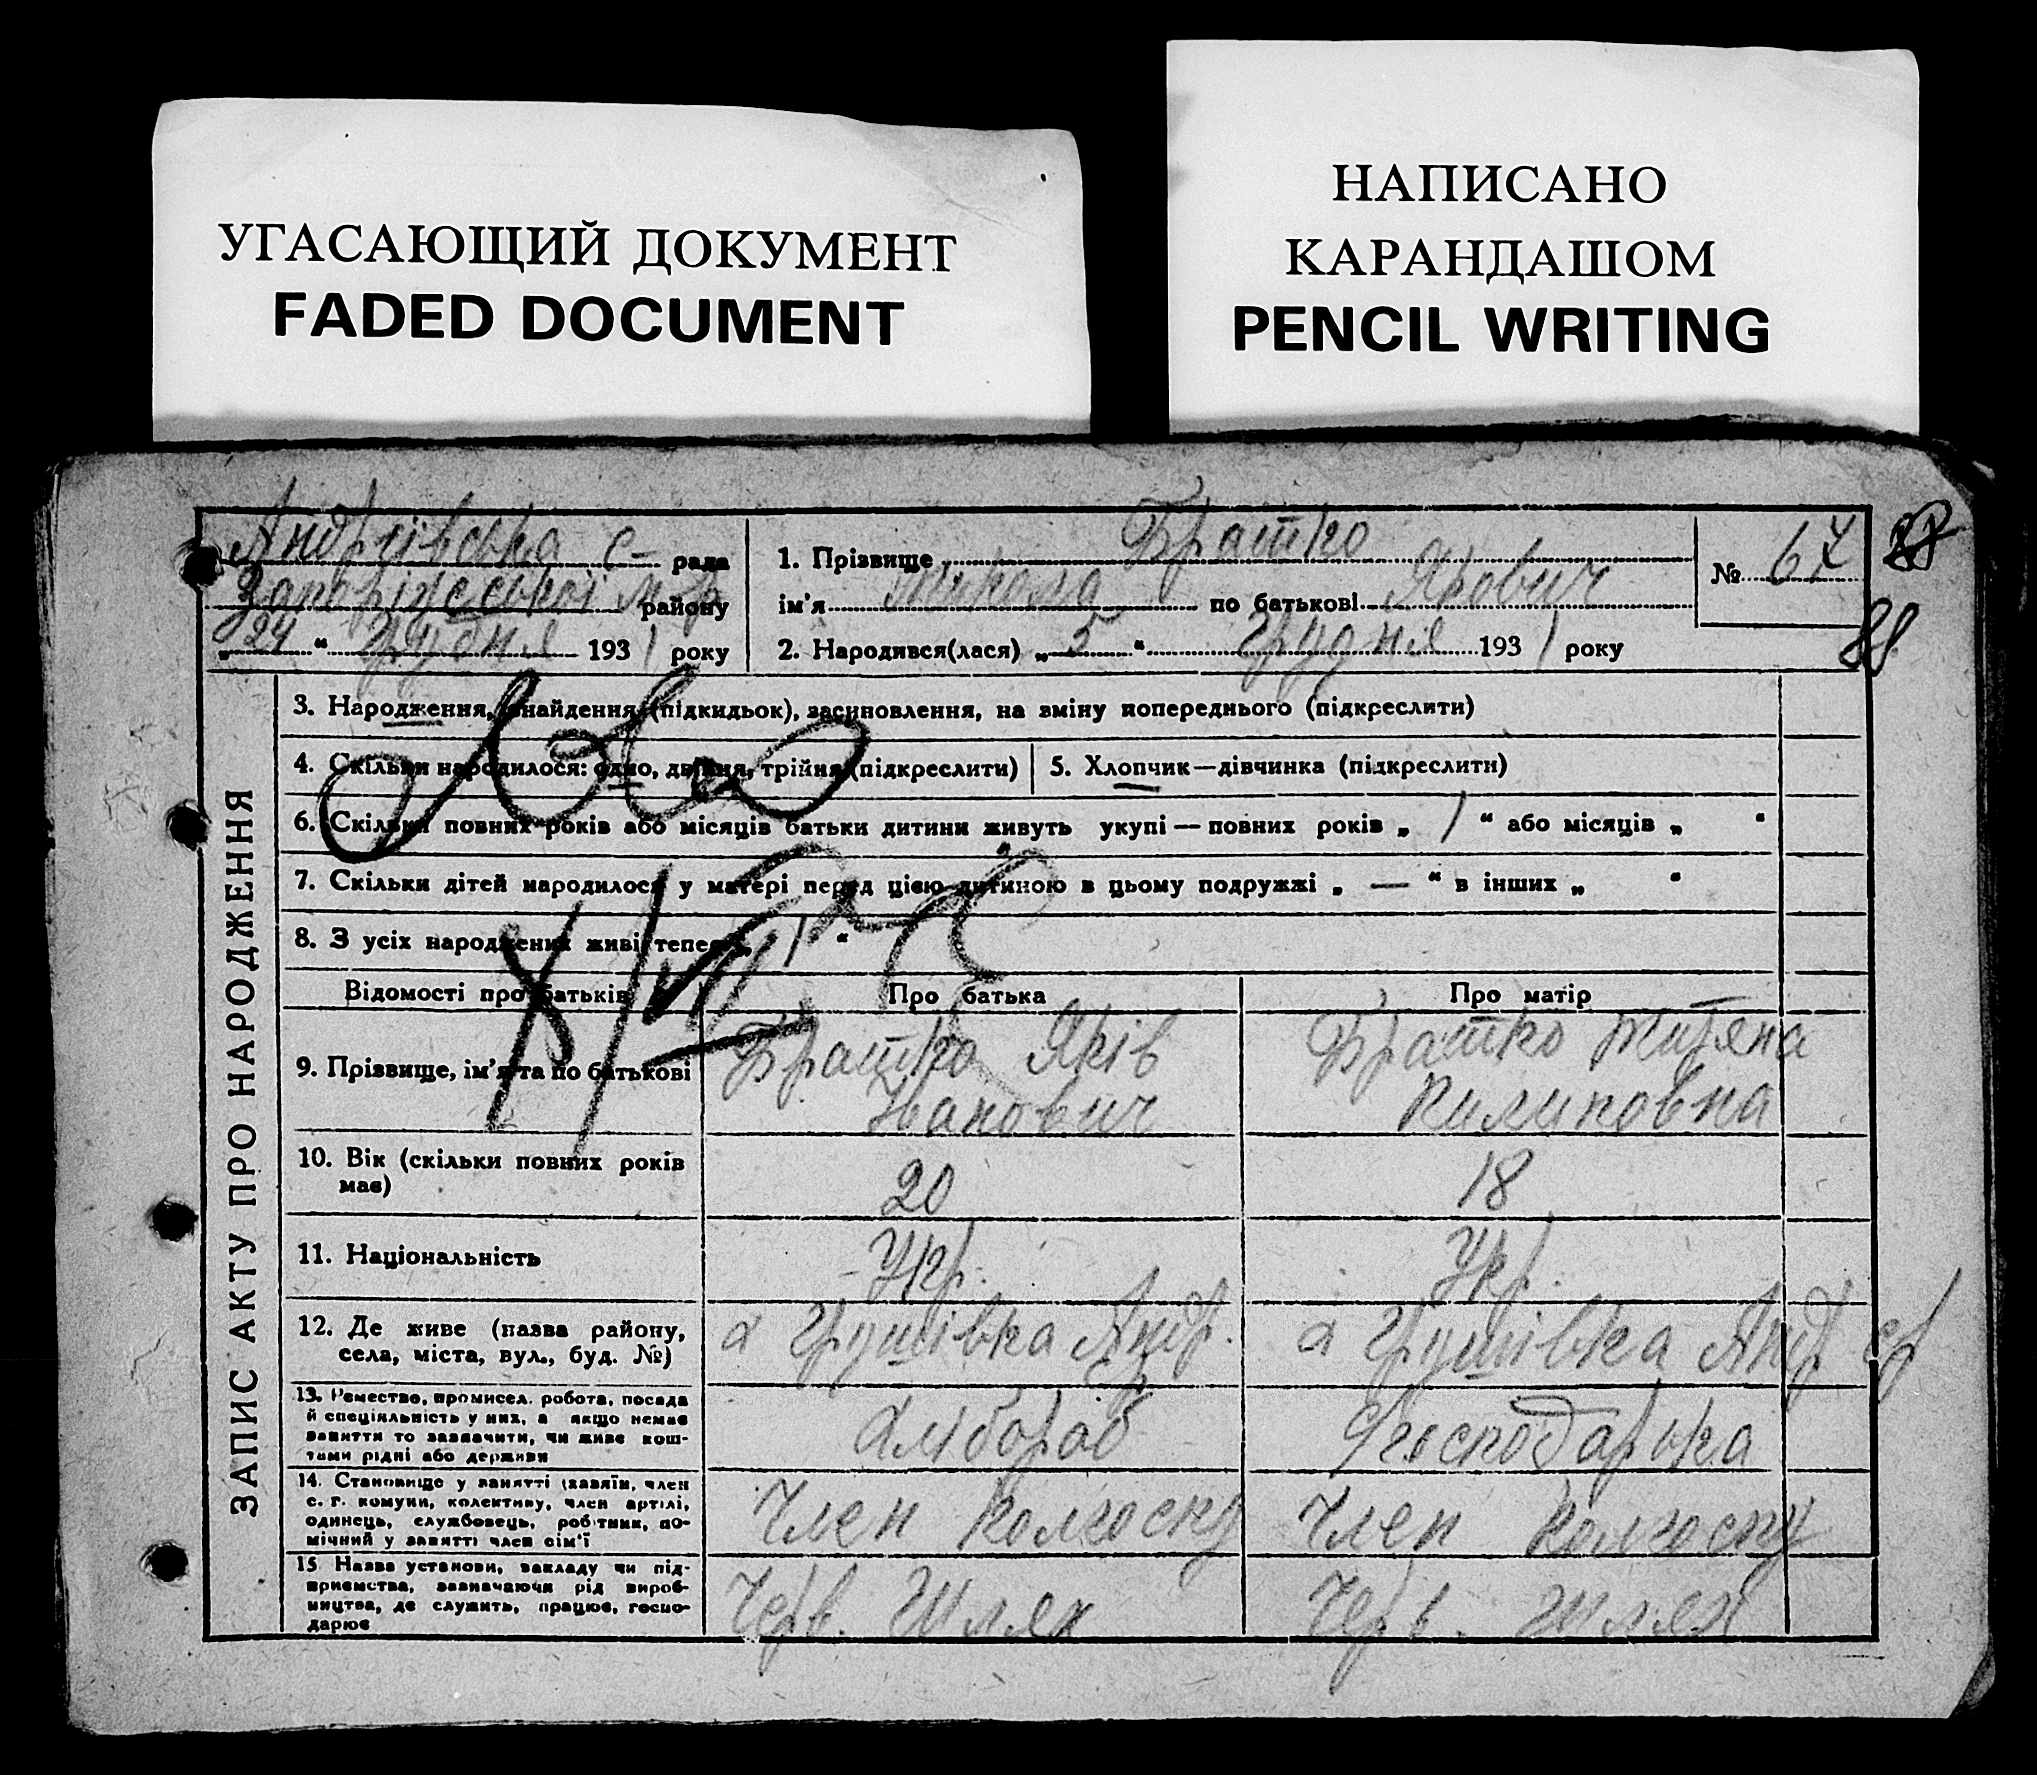 УГАСАЮЩИЙ ДОКУМЕНТ
FADED DOCUMENT
НАПИСАНО
КАРАНДАШОМ
PENCIL WRITING
Андріївська с- рада
Запорізської м р району
„24“ грудня 1931 року
1. Прізвище Братко
ім'я Микола по батькові Якович
2. Народився(лася) „5“ грудня 1931 року
№ 67
88
ЗАПИС АКТУ ПРО НАРОДЖЕННЯ
3. Народження, знайдення (підкидьок), засиновлення, на зміну попереднього (підкреслити)
4. Скільки народилося: одно, двійня, трійня (підкреслити)
5. Хлопчик—дівчинка (підкреслити)
6. Скільки повних років або місяців батьки дитини живуть укупі — повних років „ 1 “ або місяців „ “
7. Скільки дітей народилося у матері перед цією дитиною в цьому подружжі „ — “ в інших „ “
8. З усіх народжених живі тепер „ 1 “
Відомості про батьків
Про батька
Про матір
9. Прізвище, ім'я та по батькові
Братко Яків
Іванович
Братко
Килиповна
10. Вік (скільки повних років
має)
20
18
11. Національність
Укр.
Укр.
12. Де живе (назва району,
села, міста, вул., буд. №)
х Грушівка Андр.
х Грушівка Андр ср
13. Ремество, промисел, робота, посада
й спеціяльність у них, а якщо немає
заняття то зазначити, чи живе кош-
тами рідні або держави
хлібороб
господарька
14. Становище у занятті (хазяїн, член
с. г. комуни, колективу, член артілі,
одинець, службовець, робітник, по-
мічний у занятті член сім'ї
Член колгоспу
Член колгоспу
15 Назва установи, закладу чи під-
приємства, зазначаючи рід вироб-
ництва, де служить, працює, госпо-
дарює
Черв. Шлях
Черв. Шлях